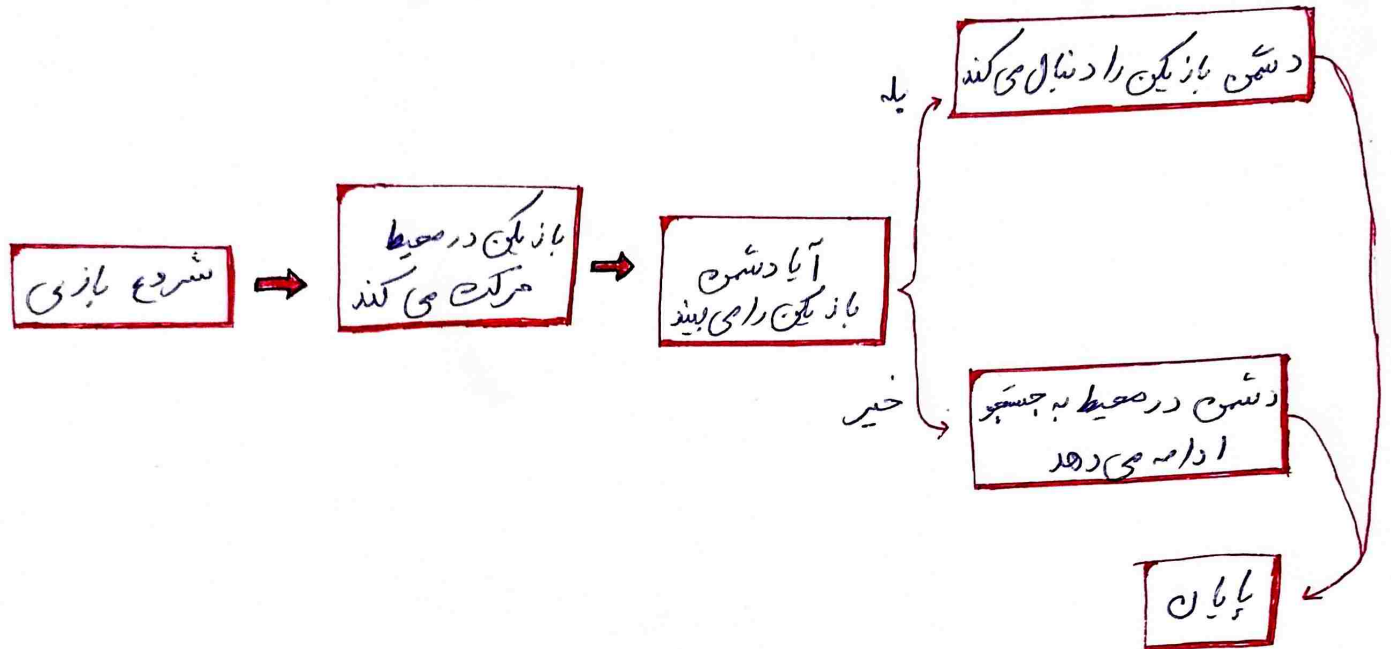 شروع بازی
بازیکن در محیط
حرکت می کند
آیا دشمن
بازیکن را می بیند
بله
دشمن بازیکن را دنبال می کند
خیر
دشمن در محیط به جستجو
ادامه می دهد
پایان